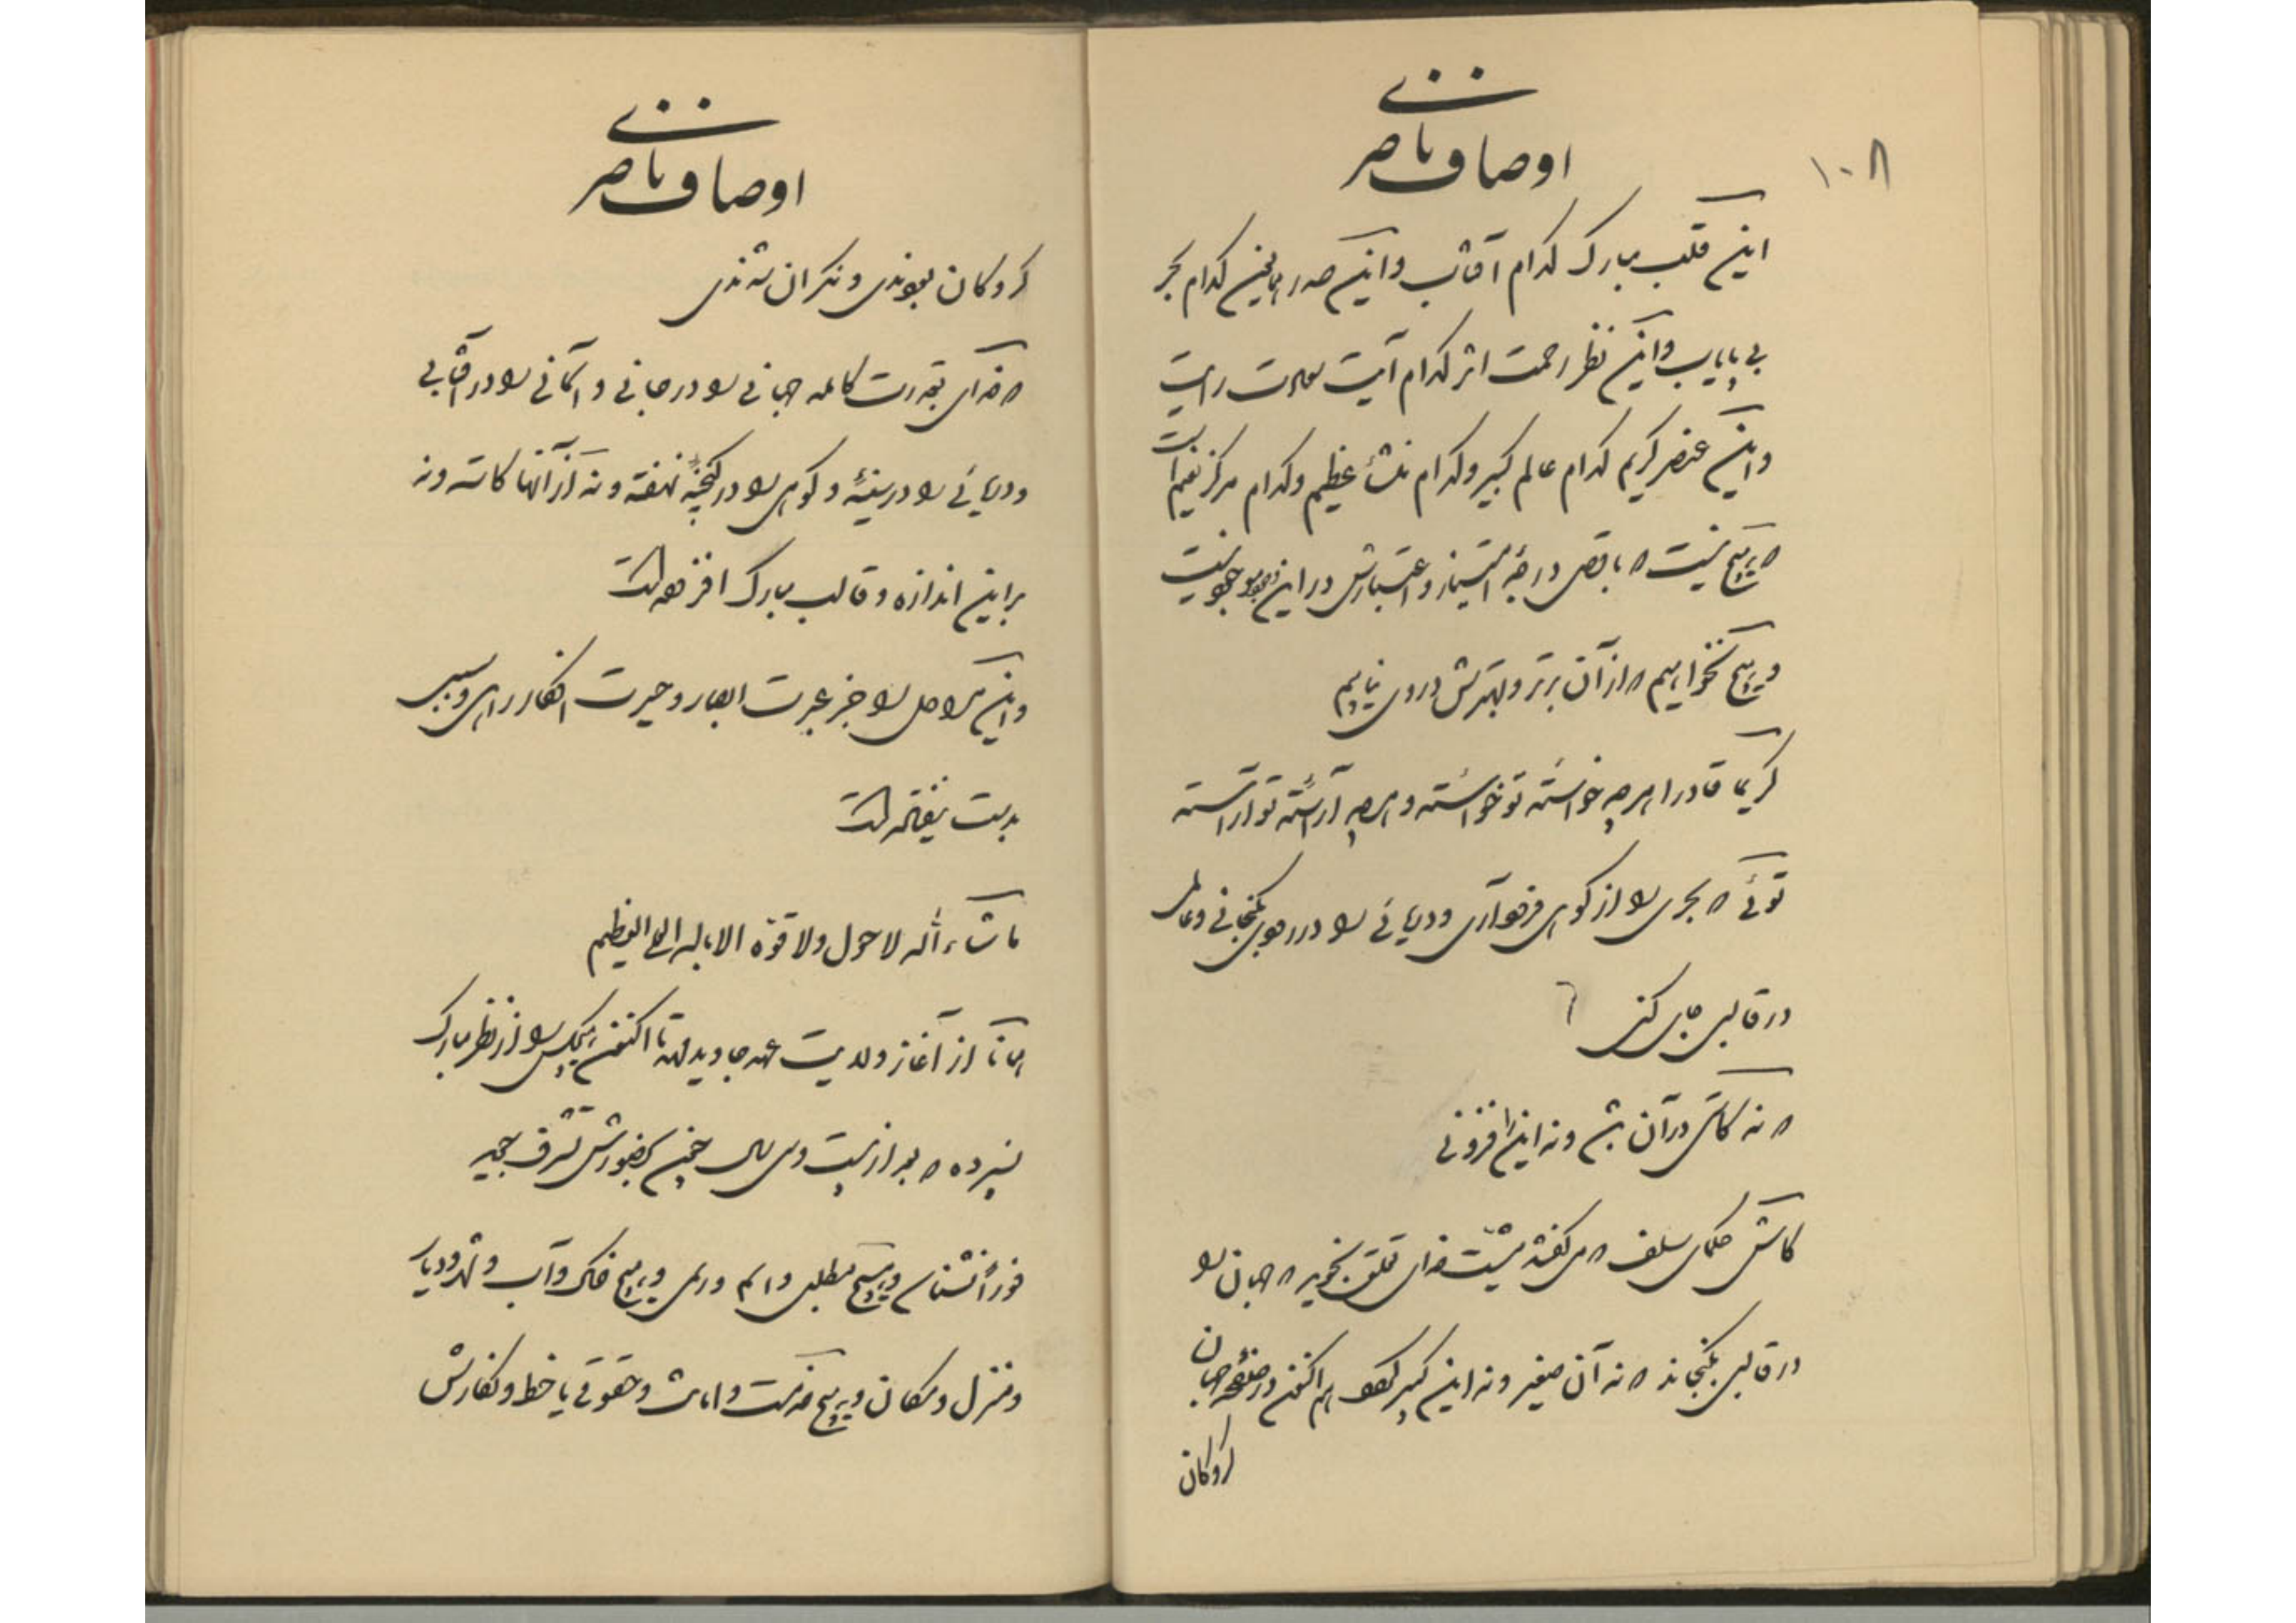 ۱۰۸
اوصاف ناصری
این قلب مبارک کدام آفتاب و این صدر همایون کدام بحر
بی پایاب و این نظر رحمت اثر کدام آیت سعادت رایت
و این عنصر کریم کدام عالم کبیر و کدام نشأ عظیم و کدام مرکز نعیم است
که هیچ نیست که باقصی درجه امتیاز و اعتبارش در این وجود موجود نیست
و هیچ نخواهیم که از آن برتر و بهترش در وی نیابیم
کریما قادرا هرچه خواسته تو خواسته و هرچه آراسته تو آراسته
توئی که بحری را از کوهی فرود آری و دریائی را در رودی بگنجانی و عالمی
در قالبی جای کنی
که نه کاهش در آن بینی و نه این را افزونی
کاش حکمای سلف که می گفتند مشیت خدای تعلق نگیرد که جهان را
در قالبی بگنجاند که نه آن صغیر و نه این کبیر گردد هم اکنون در صفحه جهان
کروکان
اوصاف ناصری
کروکان بودندی و نگران شدندی
که خدای بقدرت کامله جهانی را در جانی و آسمانی را در آفتابی
و دریائی را در سینهٔ و کوهی را در گنجینهٔ نهفته و نه از آنها کاسته و نه
بر این اندازه و قالب مبارک افزوده است
و این مراحل را جز عبرت ابصار و حیرت افکار راهی و سببی
بدست نیفتاده است
ماشاء الله لا حول ولا قوة الا بالله العلی العظیم
همانا از آغاز ولایت عهد جاوید مهد تا اکنون هیچکس را از نظر مبارک
نسپرده که بعد از بیست و سی سال چون بحضورش تشرف جوید
فوراً نشناسد و هیچ مطلبی و اسم و رسمی و هیچ خاک و آب و شهر و دیار
و منزل و مکان و هیچ خدمت و امانت و حقوقی یا خط و نگارش